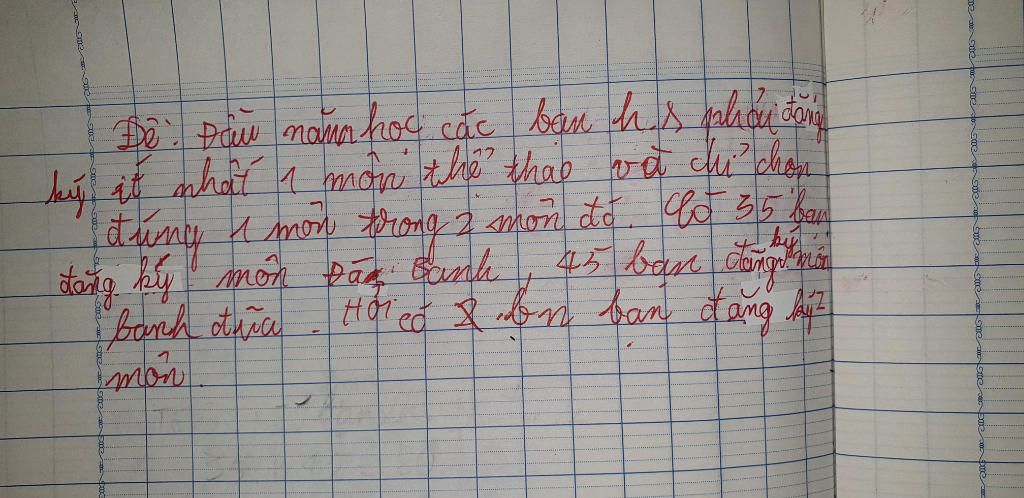 Đề: Đầu năm học các bạn h.s phải đăng
ký ít nhất 1 môn thể thao và chỉ chọn
đúng 1 môn trong 2 môn đó. Có 35 bạn
đăng ký môn Đá banh, 45 bạn đăng ký môn
banh đũa. Hỏi có bn bạn đăng ký 2
môn.